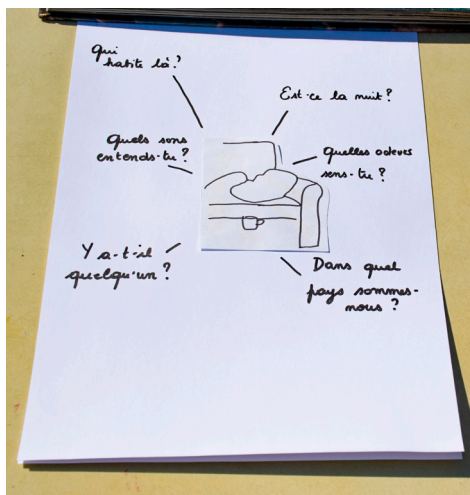 Qui
habite là?
Est-ce la nuit?
Quels sons
entends-tu?
Quelles odeurs
sens-tu?
Y a-t-il
quelqu'un?
Dans quel
pays sommes-
nous?